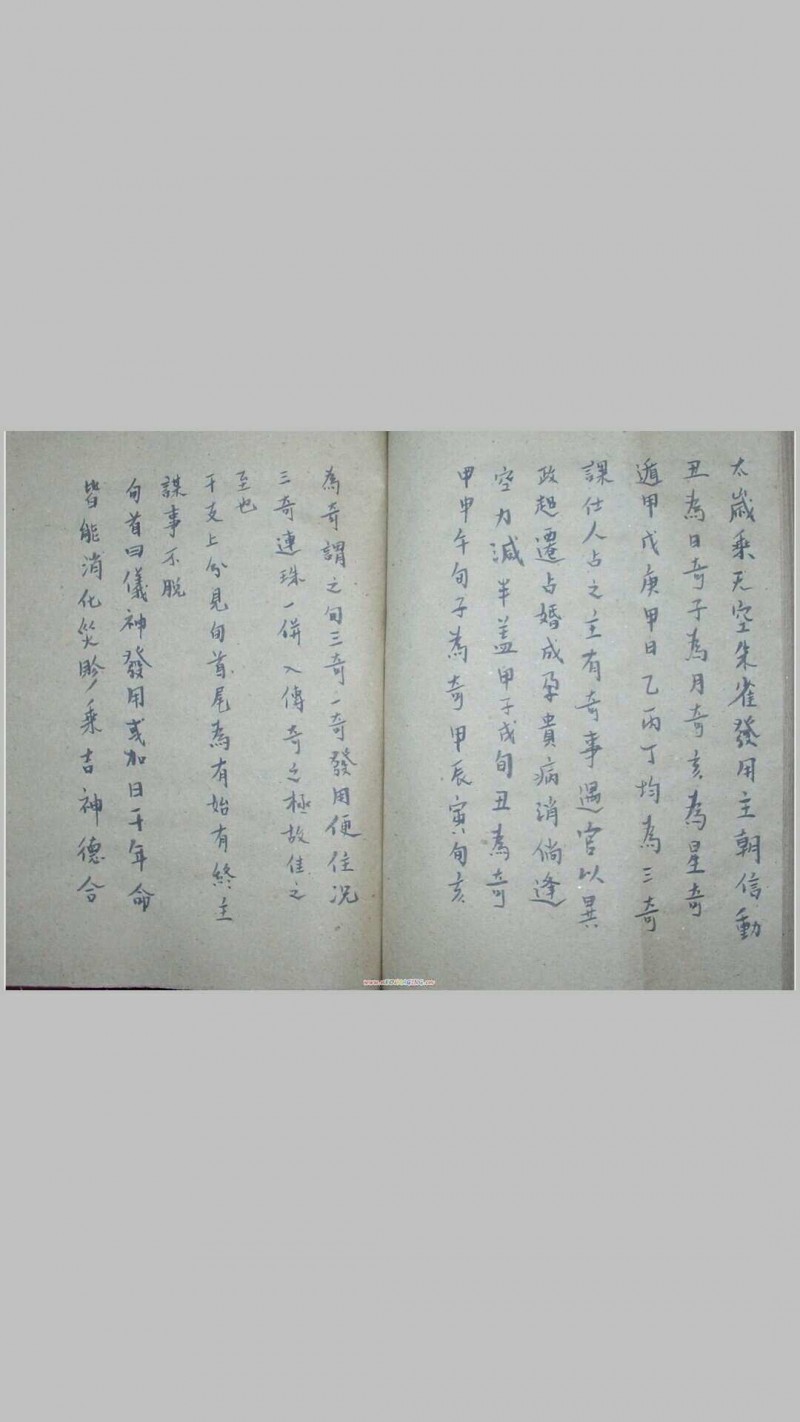 太歲乘天空朱雀發用主朝信動
丑為日奇子為月奇亥為星奇
遁甲戊庚甲日乙丙丁均為三奇
課仕人占之主有奇事遇官以異
政超遷占婚成孕貴病消倘逢
空力減半蓋甲子戌旬丑為奇
甲申午旬子為奇甲辰寅旬亥
為奇謂之旬三奇一奇發用便佳況
三奇連珠一併入傳奇之極故佳之
至也
干支上分見旬首尾為有始有終主
謀事不脫
旬首曰儀神發用或加日干年命
皆能消化災眚乘吉神德合